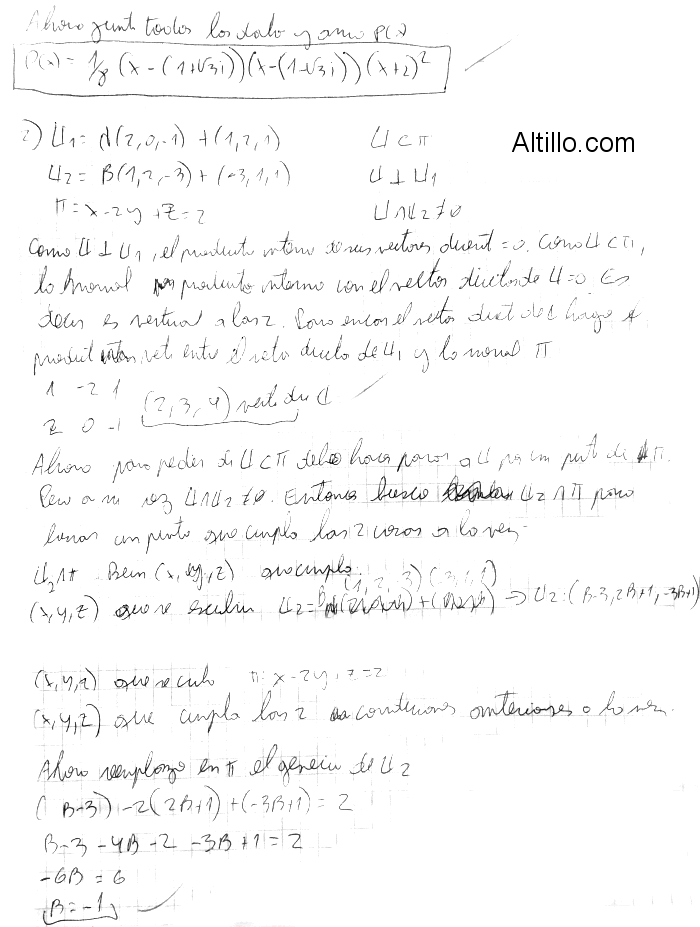 Ahora junto todos los dato y armo P(x)
P(x) = 1/8 (x-(1+√3i))(x-(1-√3i))(x+2)²
Altillo.com
2) L1 = α(2,0,-1) + (1,2,1) L ⊂ π
L2 = B(1,2,-3) + (-3,1,1) L ⊥ L1
π = x-2y+z=2 L∩L2≠∅
Como L ⊥ L1, el producto interno de sus vectores direct=0. Como L⊂π,
la normal producto interno con el vector director de L=0. Es
decir es vertical a las 2. Para encon el vector direct de L hago
product vect entre el director de L1 y la normal π
1 -2 1
2 0 -1 (2,3,4) vector de L
Ahora para pedir de L⊂π debo hacer pasar a L por un punto de π.
Pero a su vez L∩L2≠∅. Entonces busco L2∩π para
buscar un punto que cumpla las 2 cosas a la vez.
L2∩π (x,y,z) que cumpla
(1,2,3)(3,1,1)
(x,y,z) que se escriben L2= B + → L2:(B-3,2B+1,-3B+1)
(x,y,z) que se π: x-2y+z=2
(x,y,z) que cumpla las 2 condiciones anteriores a la vez.
Ahora reemplazo en π el generico de L2
(B-3)-2(2B+1)+(-3B+1)=2
B-3-4B-2-3B+1=2
-6B=6
B=-1